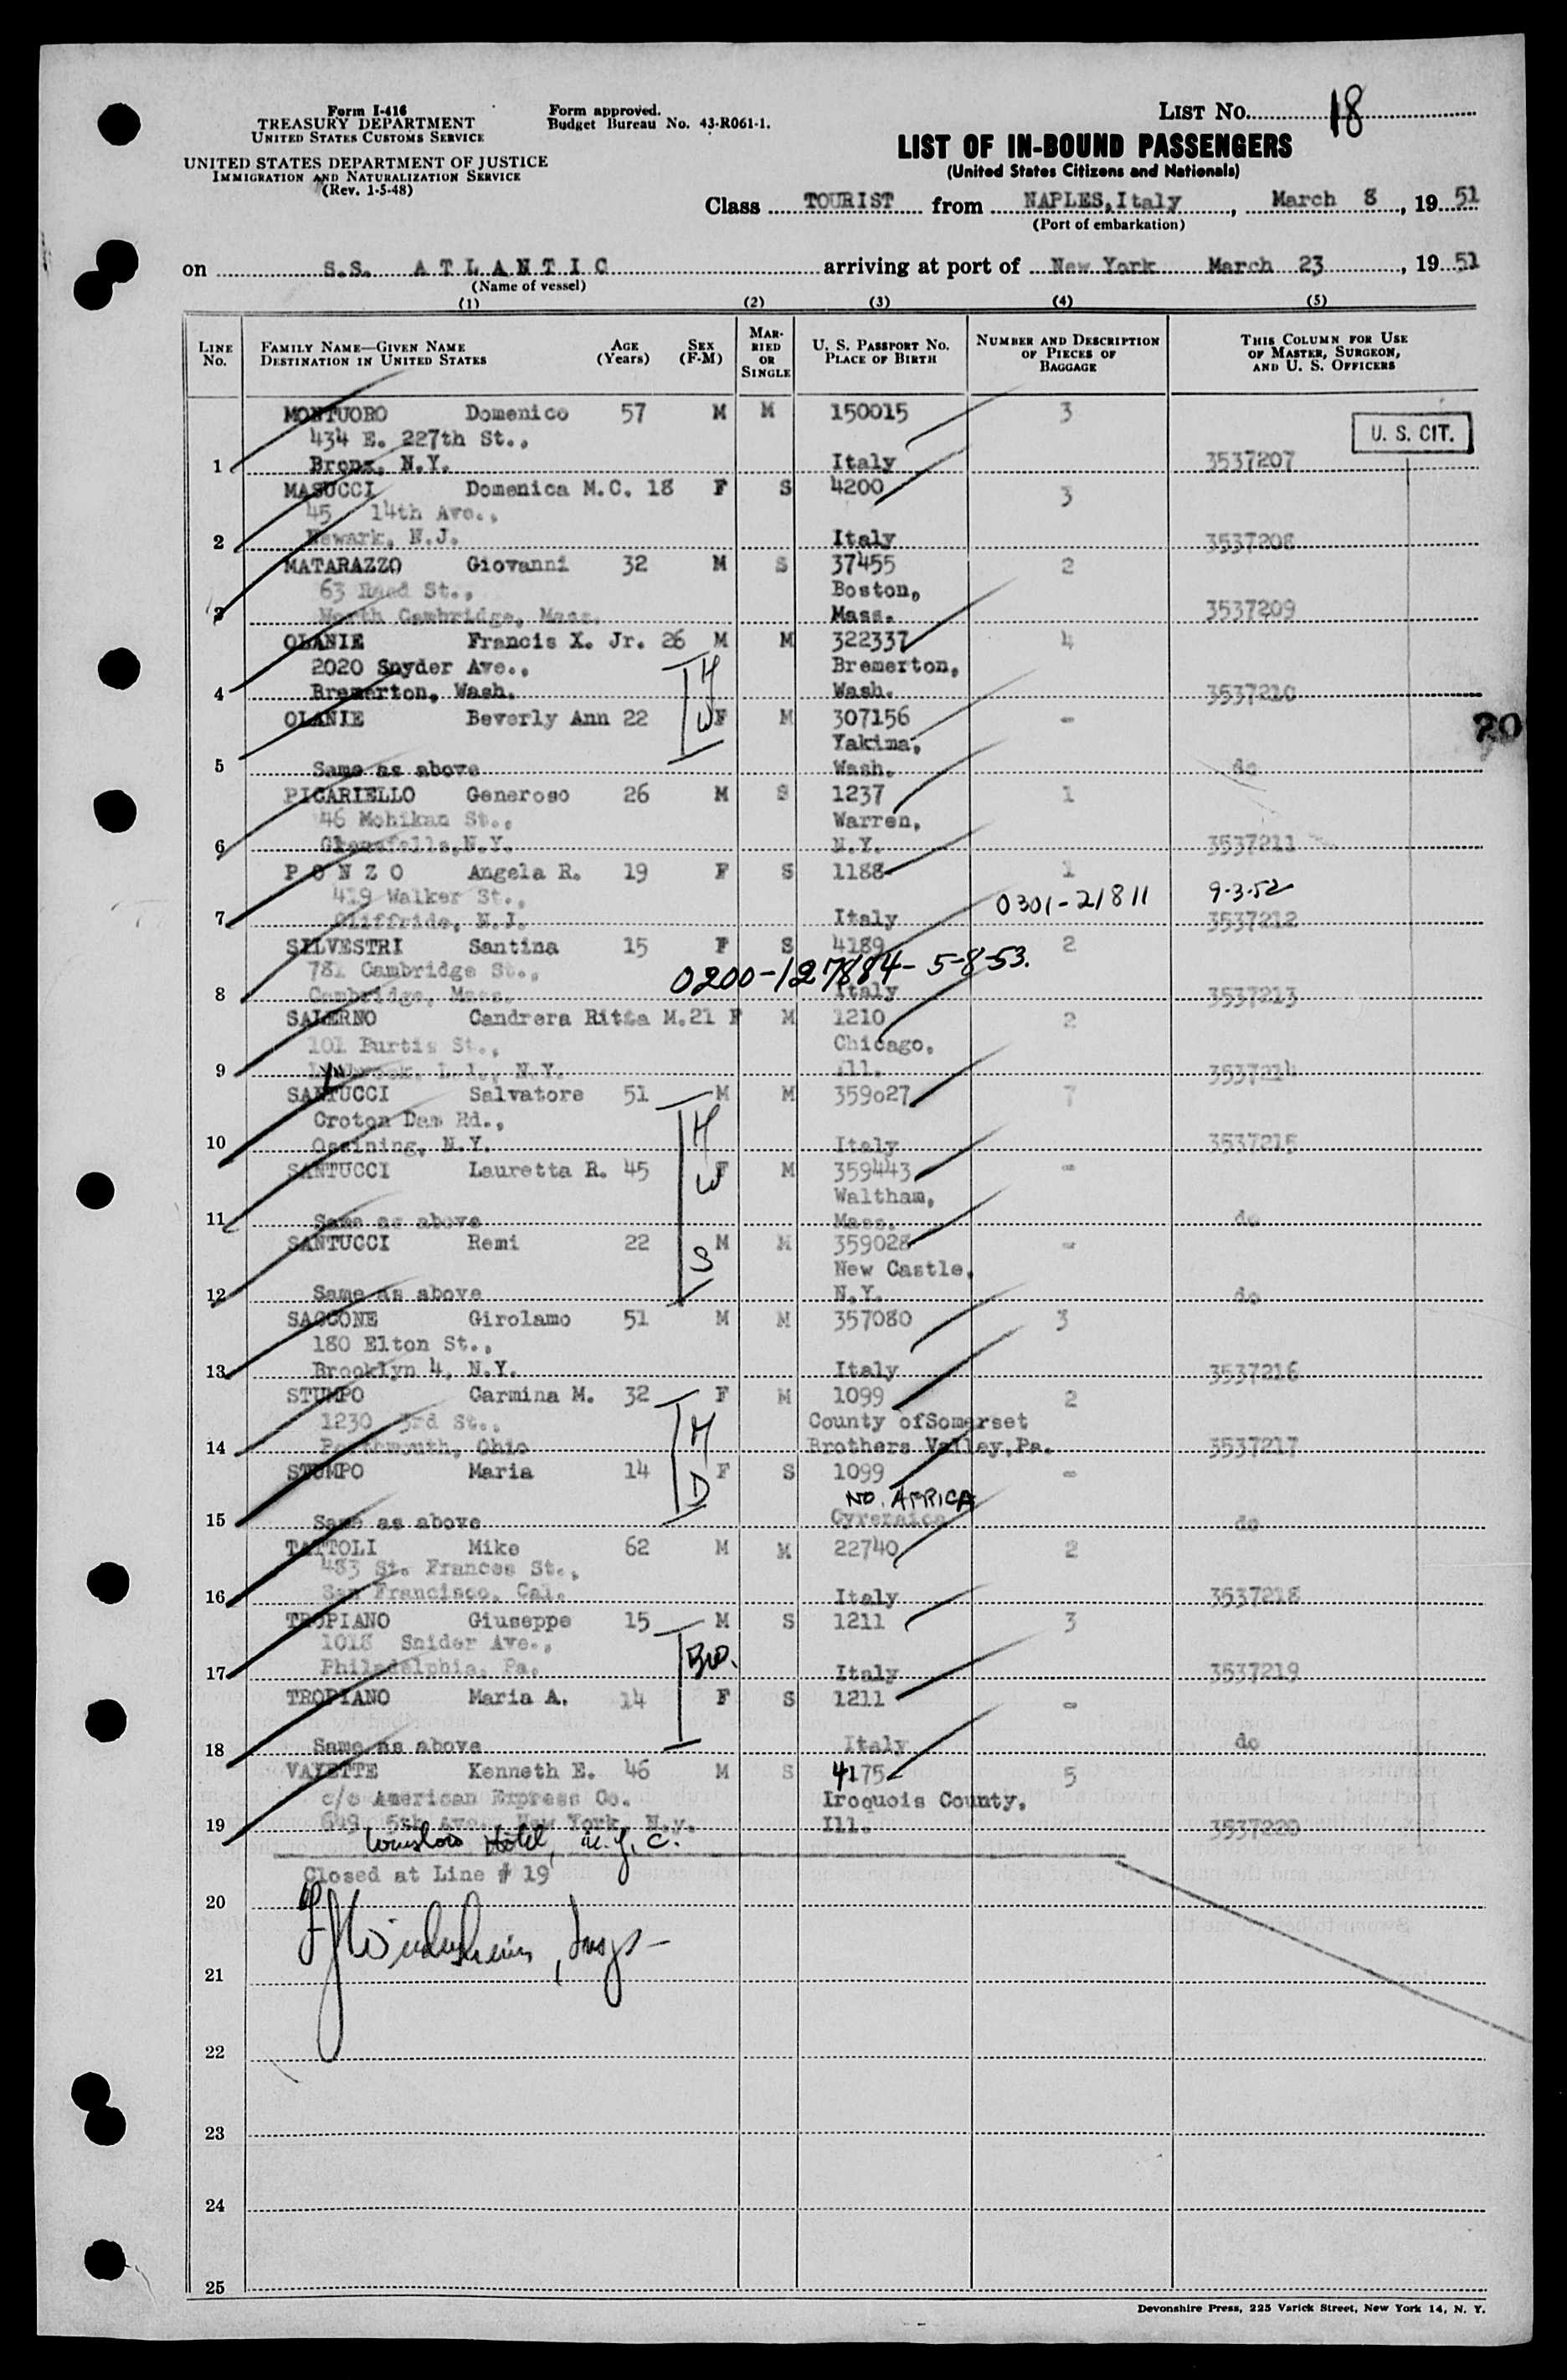 Form I-416
TREASURY DEPARTMENT
UNITED STATES CUSTOMS SERVICE
UNITED STATES DEPARTMENT OF JUSTICE
IMMIGRATION AND NATURALIZATION SERVICE
(Rev. 1-5-48)
Form approved.
Budget Bureau No. 43-R061-1.
LIST No. 18
LIST OF IN-BOUND PASSENGERS
(United States Citizens and Nationals)
Class TOURIST from NAPLES,Italy, March 8, 1951
(Port of embarkation)
on S.S. ATLANTIC arriving at port of New York March 23, 1951
(Name of vessel)
(1) (2) (3) (4) (5)
LINE No. FAMILY NAME—GIVEN NAME DESTINATION IN UNITED STATES AGE (Years) SEX (F-M) MARRIED OR SINGLE U. S. PASSPORT No. PLACE OF BIRTH NUMBER AND DESCRIPTION OF PIECES OF BAGGAGE THIS COLUMN FOR USE OF MASTER, SURGEON, AND U. S. OFFICERS
MONTUORO Domenico 57 M M 150015 3
434 E. 227th St., U. S. CIT.
1 Bronx, N.Y. Italy 3537207
MASUCCI Domenica M.C. 18 F S 4200 3
45 14th Ave.,
2 Newark, N.J. Italy 3537208
MATARAZZO Giovanni 32 M S 37455 2
63 Reed St., Boston,
3 North Cambridge, Mass. Mass. 3537209
OLANIE Francis X. Jr. 26 M M 322337 4
2020 Snyder Ave., H Bremerton,
4 Bremerton, Wash. Wash. 3537210
OLANIE Beverly Ann 22 W F M 307156 -
20
Yakima,
5 Same as above Wash. do
PICARIELLO Generoso 26 M S 1237 1
46 Mohikan St., Warren,
6 Glensfalls,N.Y. N.Y. 3537211
PONZO Angela R. 19 F S 1188 1
419 Walker St., 0301-21811 9-3-52
7 Cliffside, N.J. Italy 3537212
SILVESTRI Santina 15 F S 4189 2
781 Cambridge St., 0200-127884-5-8-53.
8 Cambridge, Mass. Italy 3537213
SALERNO Candrera Ritta M. 21 F M 1210 2
101 Burtis St., Chicago,
9 Lynbrook, L.I., N.Y. Ill. 3537214
SANTUCCI Salvatore 51 M M 359027 7
Croton Dam Rd., H
10 Ossining, N.Y. Italy 3537215
SANTUCCI Lauretta R. 45 W F M 359443 -
Waltham,
11 Same as above Mass. do
SANTUCCI Remi 22 S M M 359028 -
New Castle,
12 Same as above N.Y. do
SACCONE Girolamo 51 M M 357080 3
180 Elton St.,
13 Brooklyn 4, N.Y. Italy 3537216
STUMPO Carmina M. 32 F M 1099 2
1230 3rd St., M County ofSomerset
14 Portsmouth, Ohio Brothers Valley,Pa. 3537217
STUMPO Maria 14 D F S 1099 -
NO. AFRICA
15 Same as above Cyrenaica do
TATTOLI Mike 62 M M 22740 2
483 St. Frances St.,
16 San Francisco, Cal. Italy 3537218
TROPIANO Giuseppe 15 M S 1211 3
1018 Snider Ave., Bro.
17 Philadelphia, Pa. Italy 3537219
TROPIANO Maria A. 14 F S 1211 -
18 Same as above Italy do
VAYETTE Kenneth E. 46 M S 4175 5
c/o American Express Co. Iroquois County,
19 649 5th Ave. New York, N.y. Ill. 3537220
Hotel, N.Y.C.
Closed at Line # 19
20
21
22
23
24
25
Devonshire Press, 225 Varick Street, New York 14, N. Y.